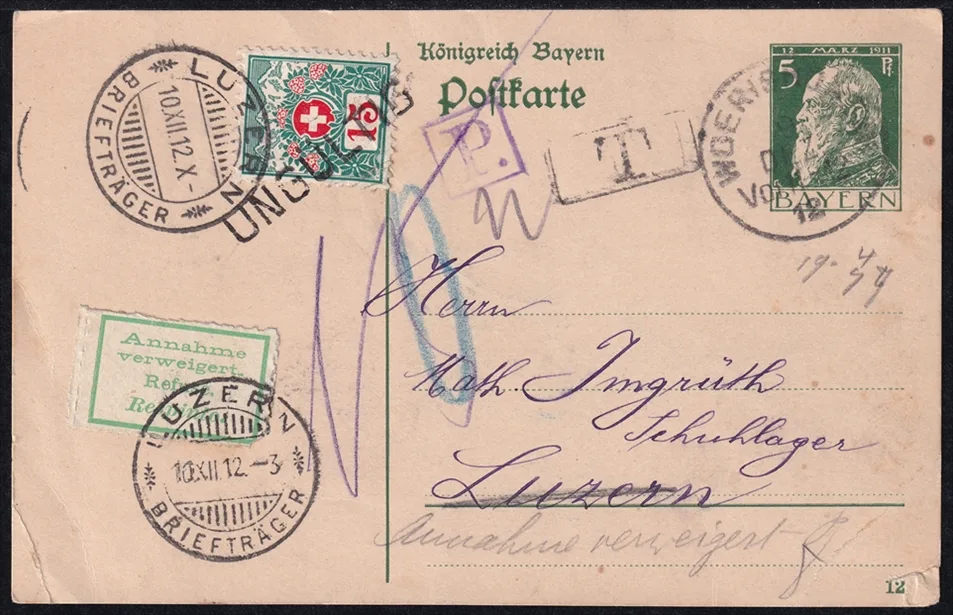 Königreich Bayern
Postkarte
12 MÄRZ 1911
5 Pf.
BAYERN
LUZERN
10.XII.12.X-
BRIEFTRÄGER
15
UNGÜLTIG
P.
T
WOERIS
VO
12
19. 4
Herrn
Math. Imgrüth
Schuhlager
Luzern
Annahme verweigert
Annahme
verweigert.
LUZERN
10.XII.12.-3
BRIEFTRÄGER
12